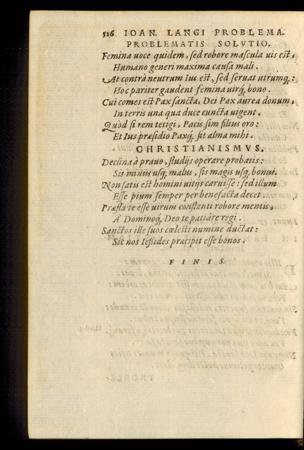 526 IOAN. LANGI PROBLEMA.
PROBLEMATIS SOLVTIO.
Femina uoce quidem, sed robore mascula uis est,
Humano generi maxima causa mali.
At contrà neutrum ius est, sed seruat utrumq;:
Hoc pariter gaudent femina uirq; bono.
Cui comes est Pax sancta, Dei Pax aurea donum,
In terris una quæ duce cuncta uigent.
Quòd si rem tetigi, Pacis sim filius oro:
Et Ius præsidio Paxq; sit alma mihi.
CHRISTIANISMVS.
Declina à prauo, studijs operare probatis:
Sis minùs usq; malus, sis magis usq; bonus.
Non satis est homini uitijs caruisse: sed illum
Esse pium semper per benefacta decet.
Præsta te esse uirum constanti robore mentis,
A Dominoq; Deo te patiare regi.
Sanctos ille suos cœlesti numine ductat:
Sic nos Iessides præcipit esse bonos.
FINIS.